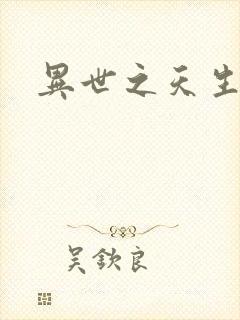 異世之天生
吴欽良